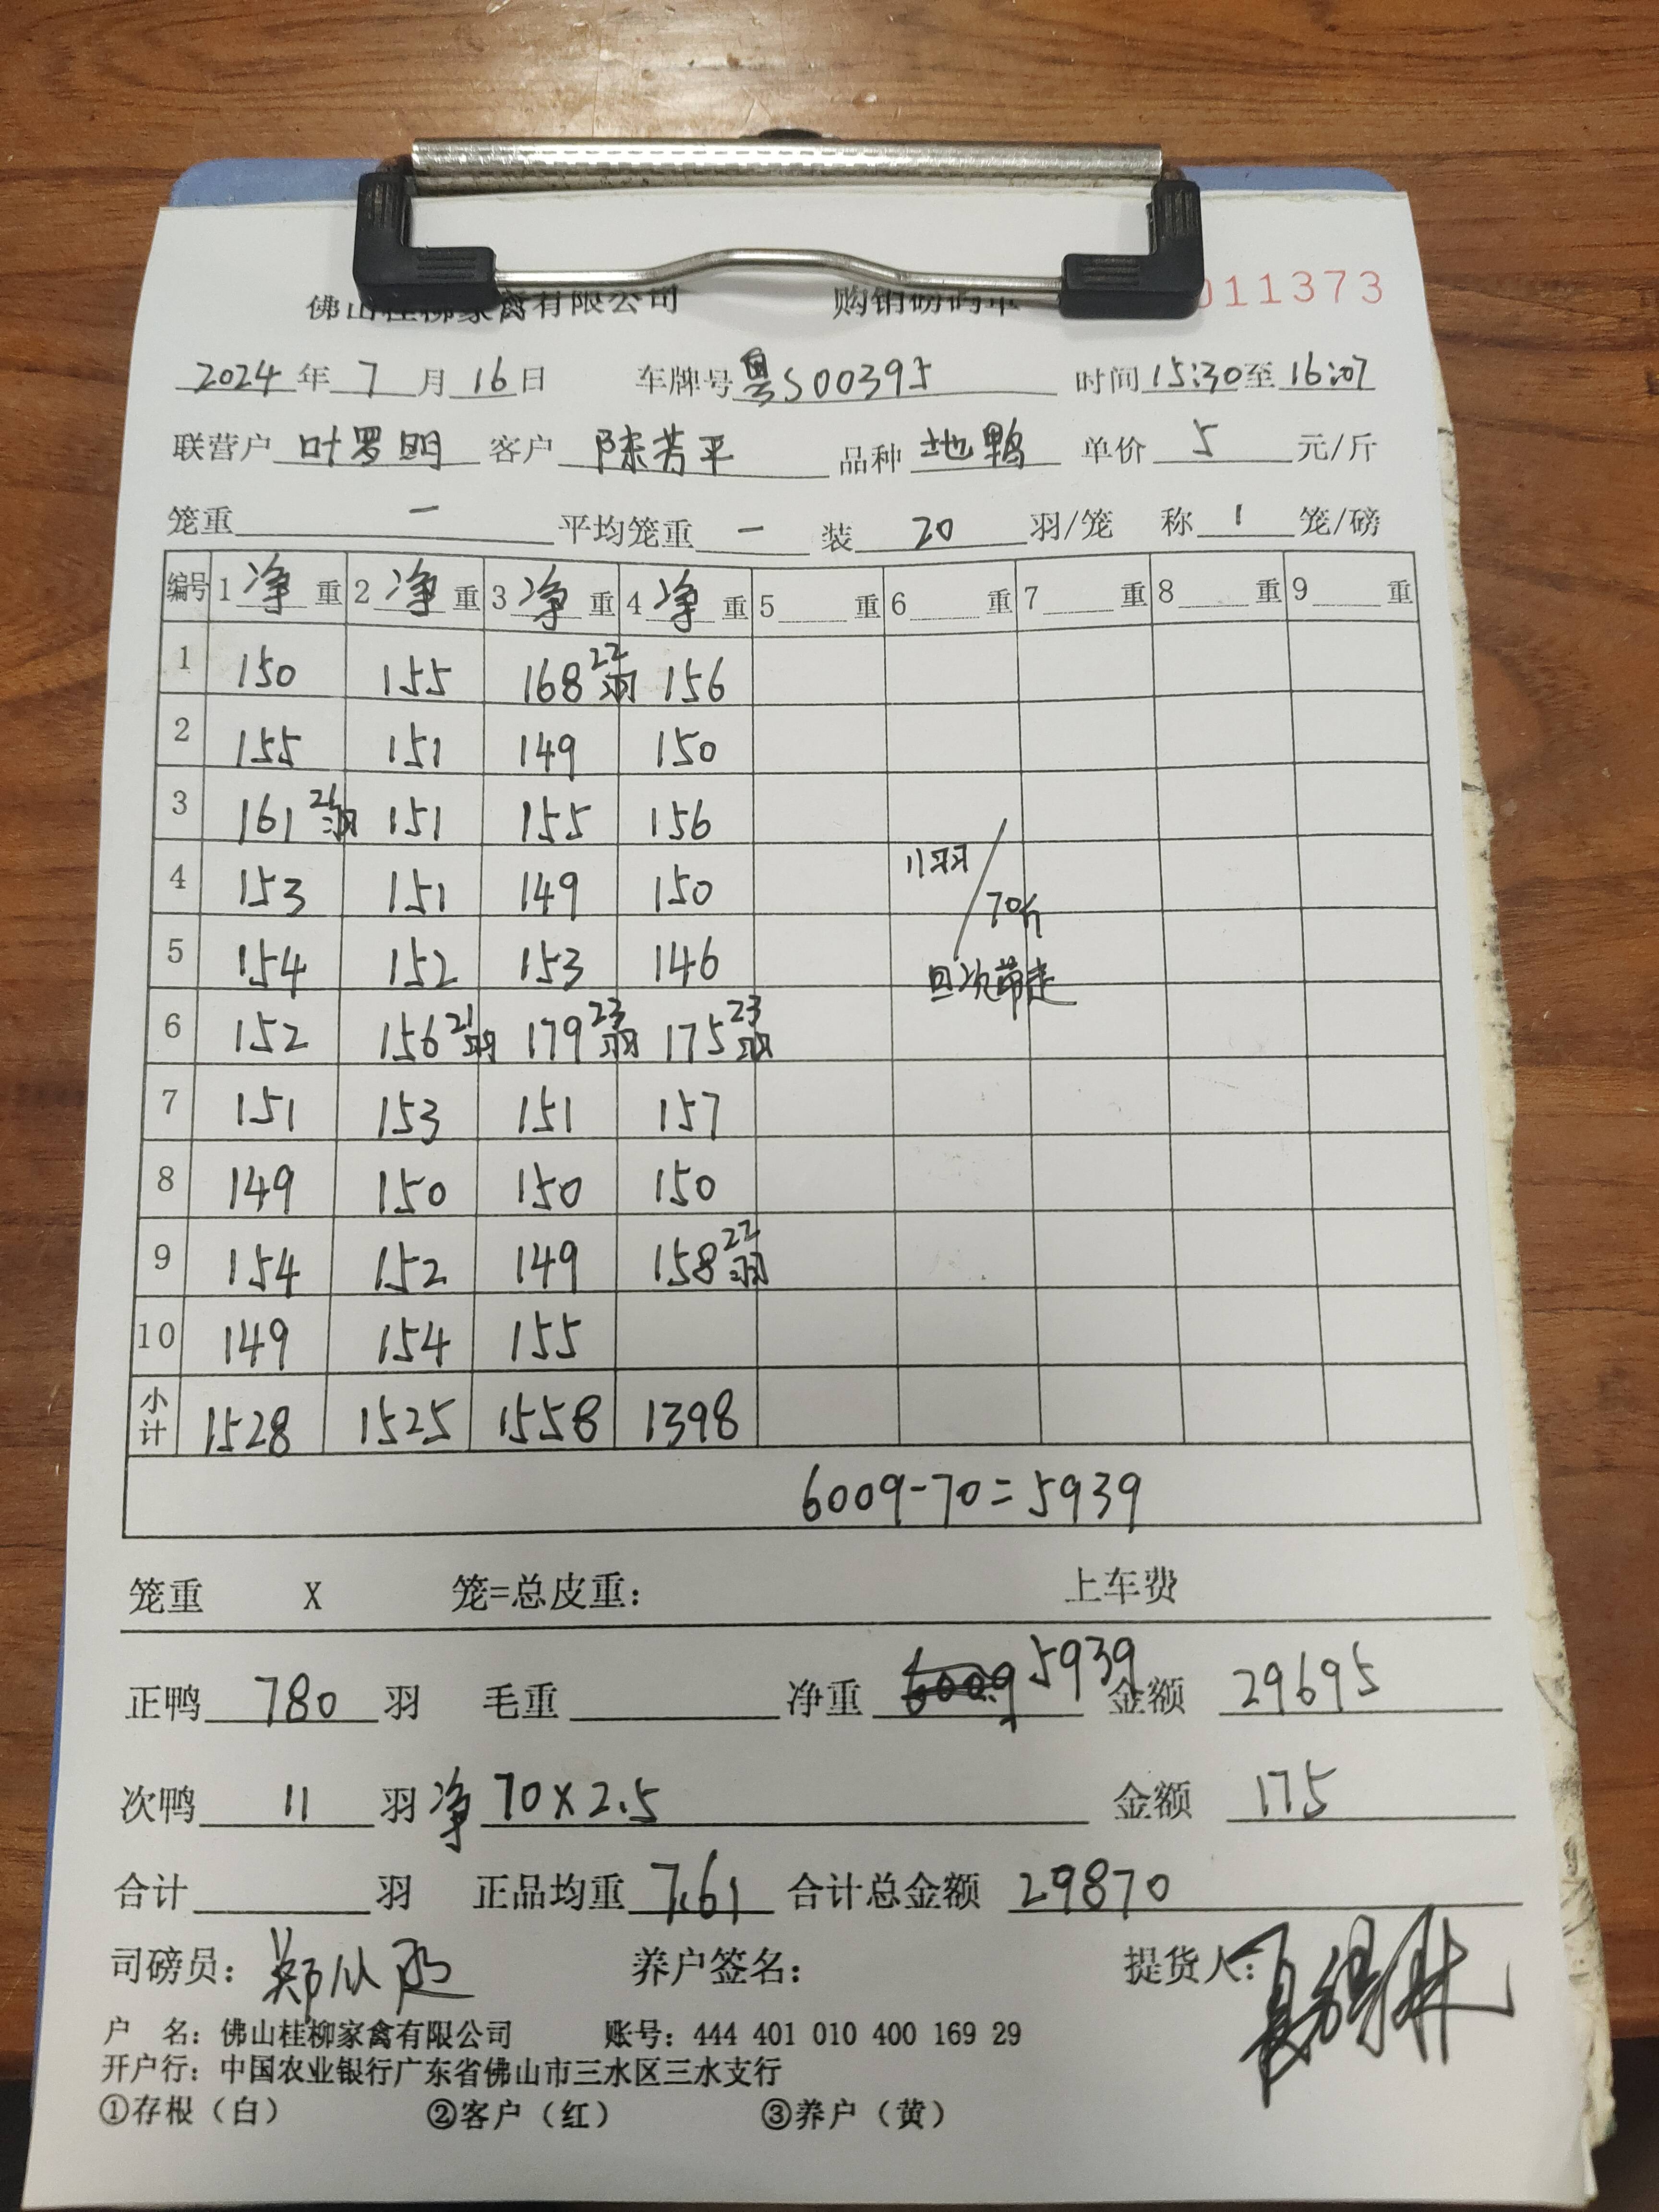 佛山桂柳家禽有限公司 购销磅码单 011373
2024年7月16日 车牌号粤S00395 时间15:30至16:07
联营户 叶罗明 客户 陈芳平 品种 地鸭 单价 5 元/斤
笼重 一 平均笼重 一 装 20 羽/笼 称 1 笼/磅
编号 1净重 2净重 3净重 4净重 5 重 6 重 7 重 8 重 9 重
1 150 155 168 22羽 156
2 155 151 149 150
3 161 21羽 151 155 156
4 153 151 149 150 11羽/70斤
5 154 152 153 146 回次带走
6 152 156 21羽 179 23羽 175 23羽
7 151 153 151 157
8 149 150 150 150
9 154 152 149 158 22羽
10 149 154 155
小计 1528 1525 1558 1398
6009-70=5939
笼重 X 笼=总皮重: 上车费
正鸭 780 羽 毛重 净重 6009 5939 金额 29695
次鸭 11 羽 净 70×2.5 金额 175
合计 羽 正品均重 7.61 合计总金额 29870
司磅员: 养户签名: 提货人:
户 名: 佛山桂柳家禽有限公司 账号: 444 401 010 400 169 29
开户行: 中国农业银行广东省佛山市三水区三水支行
①存根（白） ②客户（红） ③养户（黄）